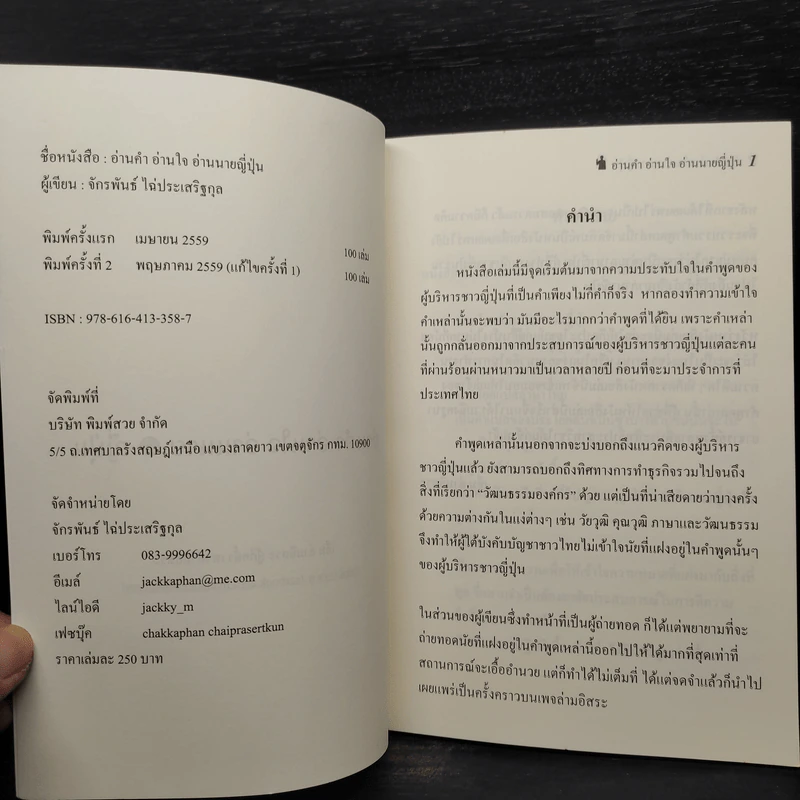 ชื่อหนังสือ : อ่านคำ อ่านใจ อ่านนายญี่ปุ่น
ผู้เขียน : จักรพันธ์ ไฉ่ประเสริฐกุล
พิมพ์ครั้งแรก เมษายน 2559 100 เล่ม
พิมพ์ครั้งที่ 2 พฤษภาคม 2559 (แก้ไขครั้งที่ 1) 100 เล่ม
ISBN : 978-616-413-358-7
จัดพิมพ์ที่
บริษัท พิมพ์สวย จำกัด
5/5 ถ.เทศบาลรังสฤษฎ์เหนือ แขวงลาดยาว เขตจตุจักร กทม. 10900
จัดจำหน่ายโดย
จักรพันธ์ ไฉ่ประเสริฐกุล
เบอร์โทร 083-9996642
อีเมล์ jackkaphan@me.com
ไลน์ไอดี jackky_m
เฟซบุ๊ค chakkaphan chaiprasertkun
ราคาเล่มละ 250 บาท
อ่านคำ อ่านใจ อ่านนายญี่ปุ่น 1
คำนำ
หนังสือเล่มนี้มีจุดเริ่มต้นมาจากความประทับใจในคำพูดของ
ผู้บริหารชาวญี่ปุ่นที่เป็นคำเพียงไม่กี่คำก็จริง หากลองทำความเข้าใจ
คำเหล่านั้นจะพบว่า มันมีอะไรมากกว่าคำพูดที่ได้ยิน เพราะคำเหล่า
นั้นถูกกลั่นออกมาจากประสบการณ์ของผู้บริหารชาวญี่ปุ่นแต่ละคน
ที่ผ่านร้อนผ่านหนาวมาเป็นเวลาหลายปี ก่อนที่จะมาประจำการที่
ประเทศไทย
คำพูดเหล่านั้นนอกจากจะบ่งบอกถึงแนวคิดของผู้บริหาร
ชาวญี่ปุ่นแล้ว ยังสามารถบอกถึงทิศทางการทำธุรกิจรวมไปจนถึง
สิ่งที่เรียกว่า “วัฒนธรรมองค์กร” ด้วย แต่เป็นที่น่าเสียดายว่าบางครั้ง
ด้วยความต่างกันในแง่ต่างๆ เช่น วัยวุฒิ คุณวุฒิ ภาษาและวัฒนธรรม
จึงทำให้ผู้ใต้บังคับบัญชาชาวไทยไม่เข้าใจนัยที่แฝงอยู่ในคำพูดนั้นๆ
ของผู้บริหารชาวญี่ปุ่น
ในส่วนของผู้เขียนซึ่งทำหน้าที่เป็นผู้ถ่ายทอด ก็ได้แต่พยายามที่จะ
ถ่ายทอดนัยที่แฝงอยู่ในคำพูดเหล่านี้ออกไปให้ได้มากที่สุดเท่าที่
สถานการณ์จะเอื้ออำนวย แต่ก็ทำได้ไม่เต็มที่ ได้แต่จดจำแล้วก็นำไป
เผยแพร่เป็นครั้งคราวบนเพจล่ามอิสระ